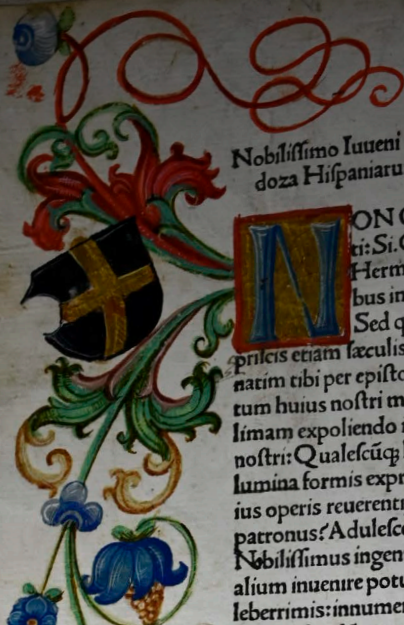 Nobilissimo Iuueni
doza Hispaniaru
NON
ti: Si.
Herm
bus in
Sed q
priscis etiam sæculis
natim tibi per episto
tum huius nostri m
limam expoliendo
nostri: Qualescūq
lumina formis expr
ius operis reuerent
patronus? Adulesc
Nobilissimus ingen
alium inuenire potu
leberrimis: innume